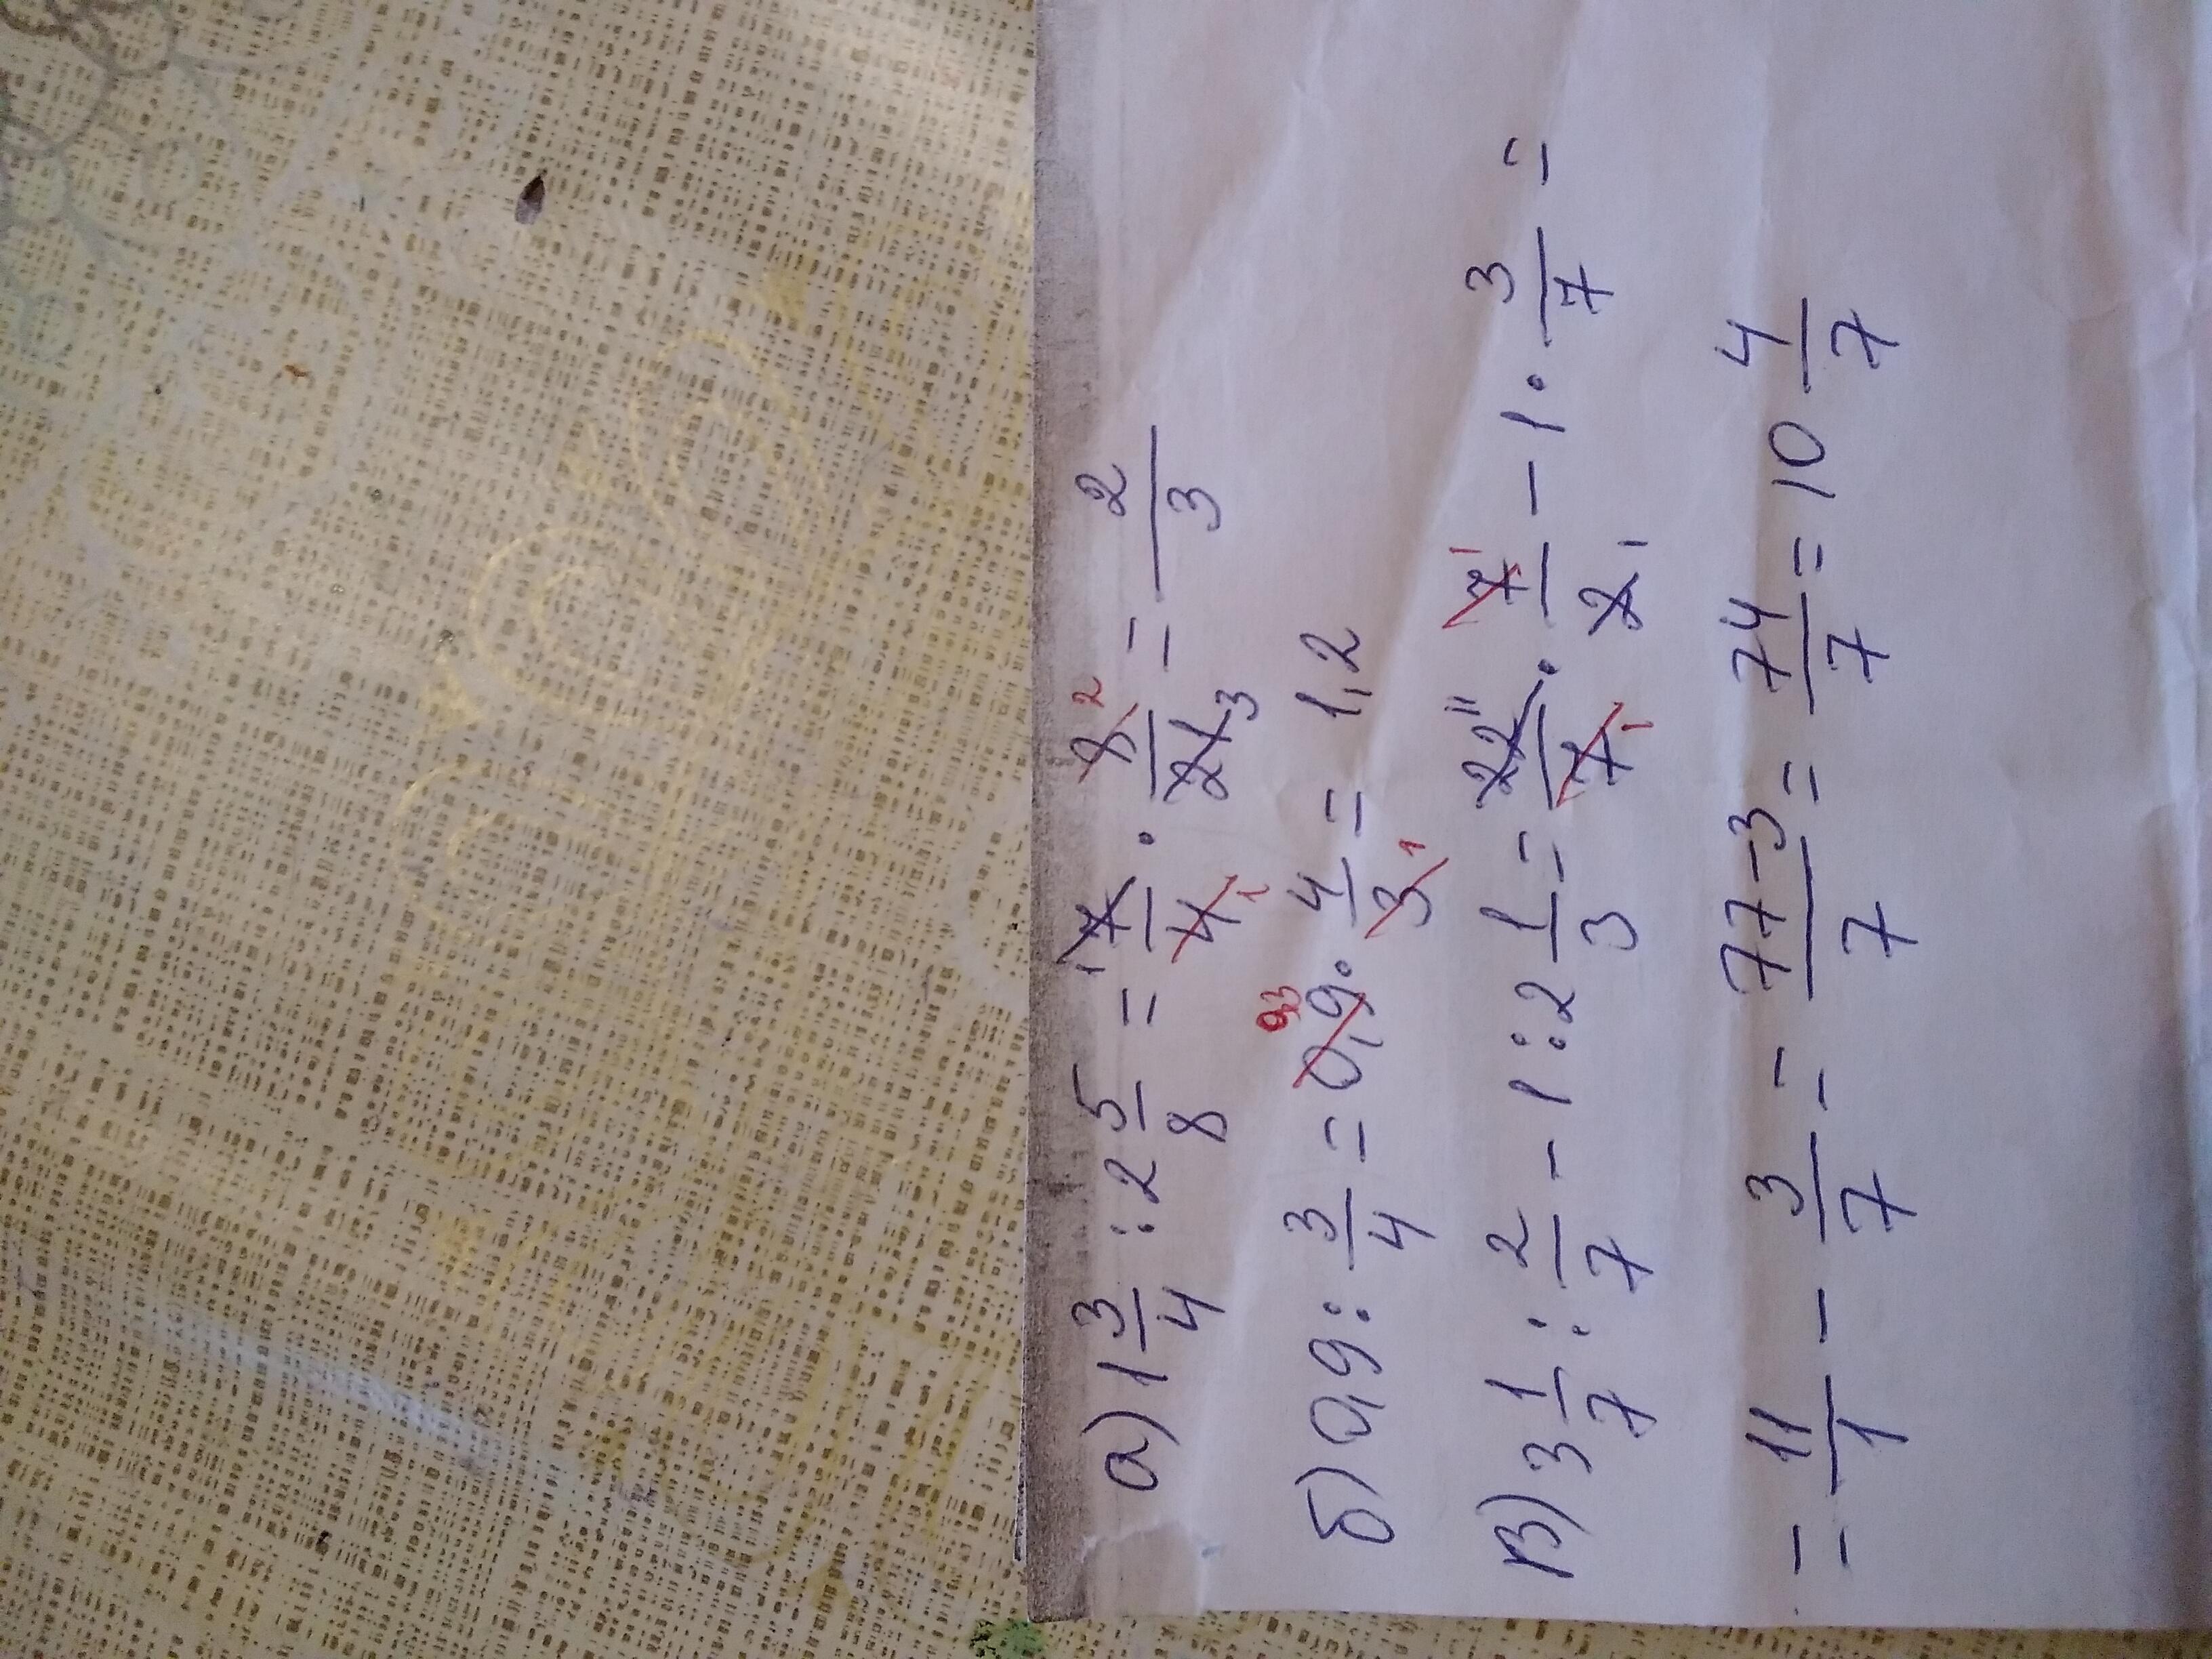 а) 1 3/4 : 2 5/8 = 7/4 · 8/21 = 2/3
б) 0,9 : 3/4 = 0,9 · 4/3 = 1,2
в) 3 1/7 : 2/7 - 1 : 2 1/3 = 22/7 · 7/2 - 1 · 3/7 =
= 11/1 - 3/7 = 77-3/7 = 74/7 = 10 4/7